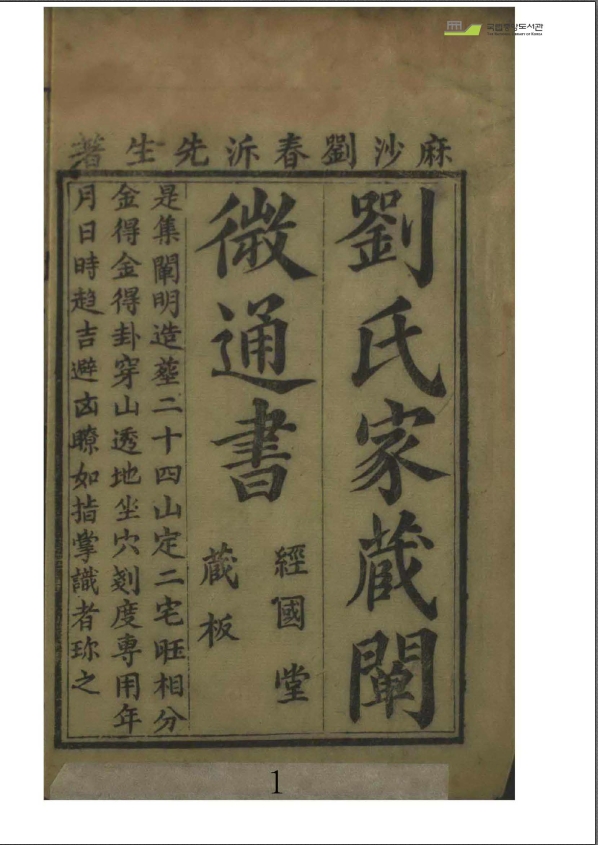 국립중앙도서관
THE NATIONAL LIBRARY OF KOREA
麻沙劉春沂先生著
劉氏家蔵闡
微通書
經國堂
蔵板
是集闡明造塟二十四山定二宅旺相分
金得金得卦穿山透地坐穴剡度専用年
月日時趋吉避凶瞭如指掌識者珎之
1